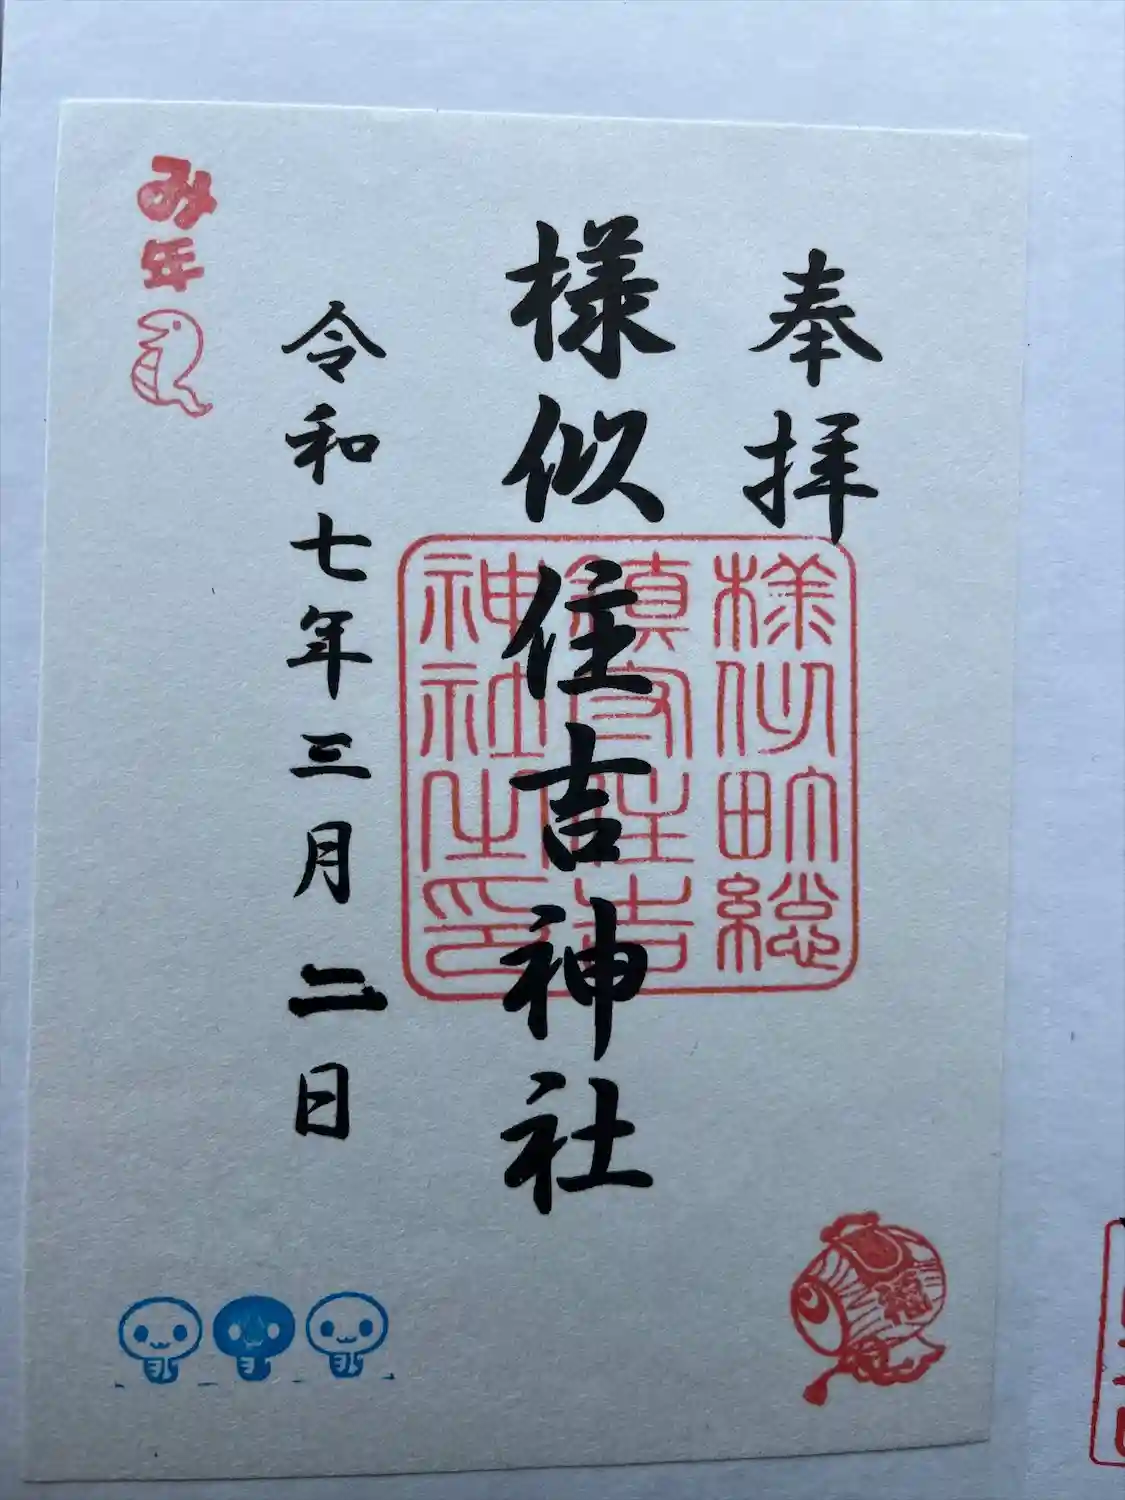 奉拝
様似住吉神社
令和七年三月二日
み年
様似町総
鎮守住吉
神社之印